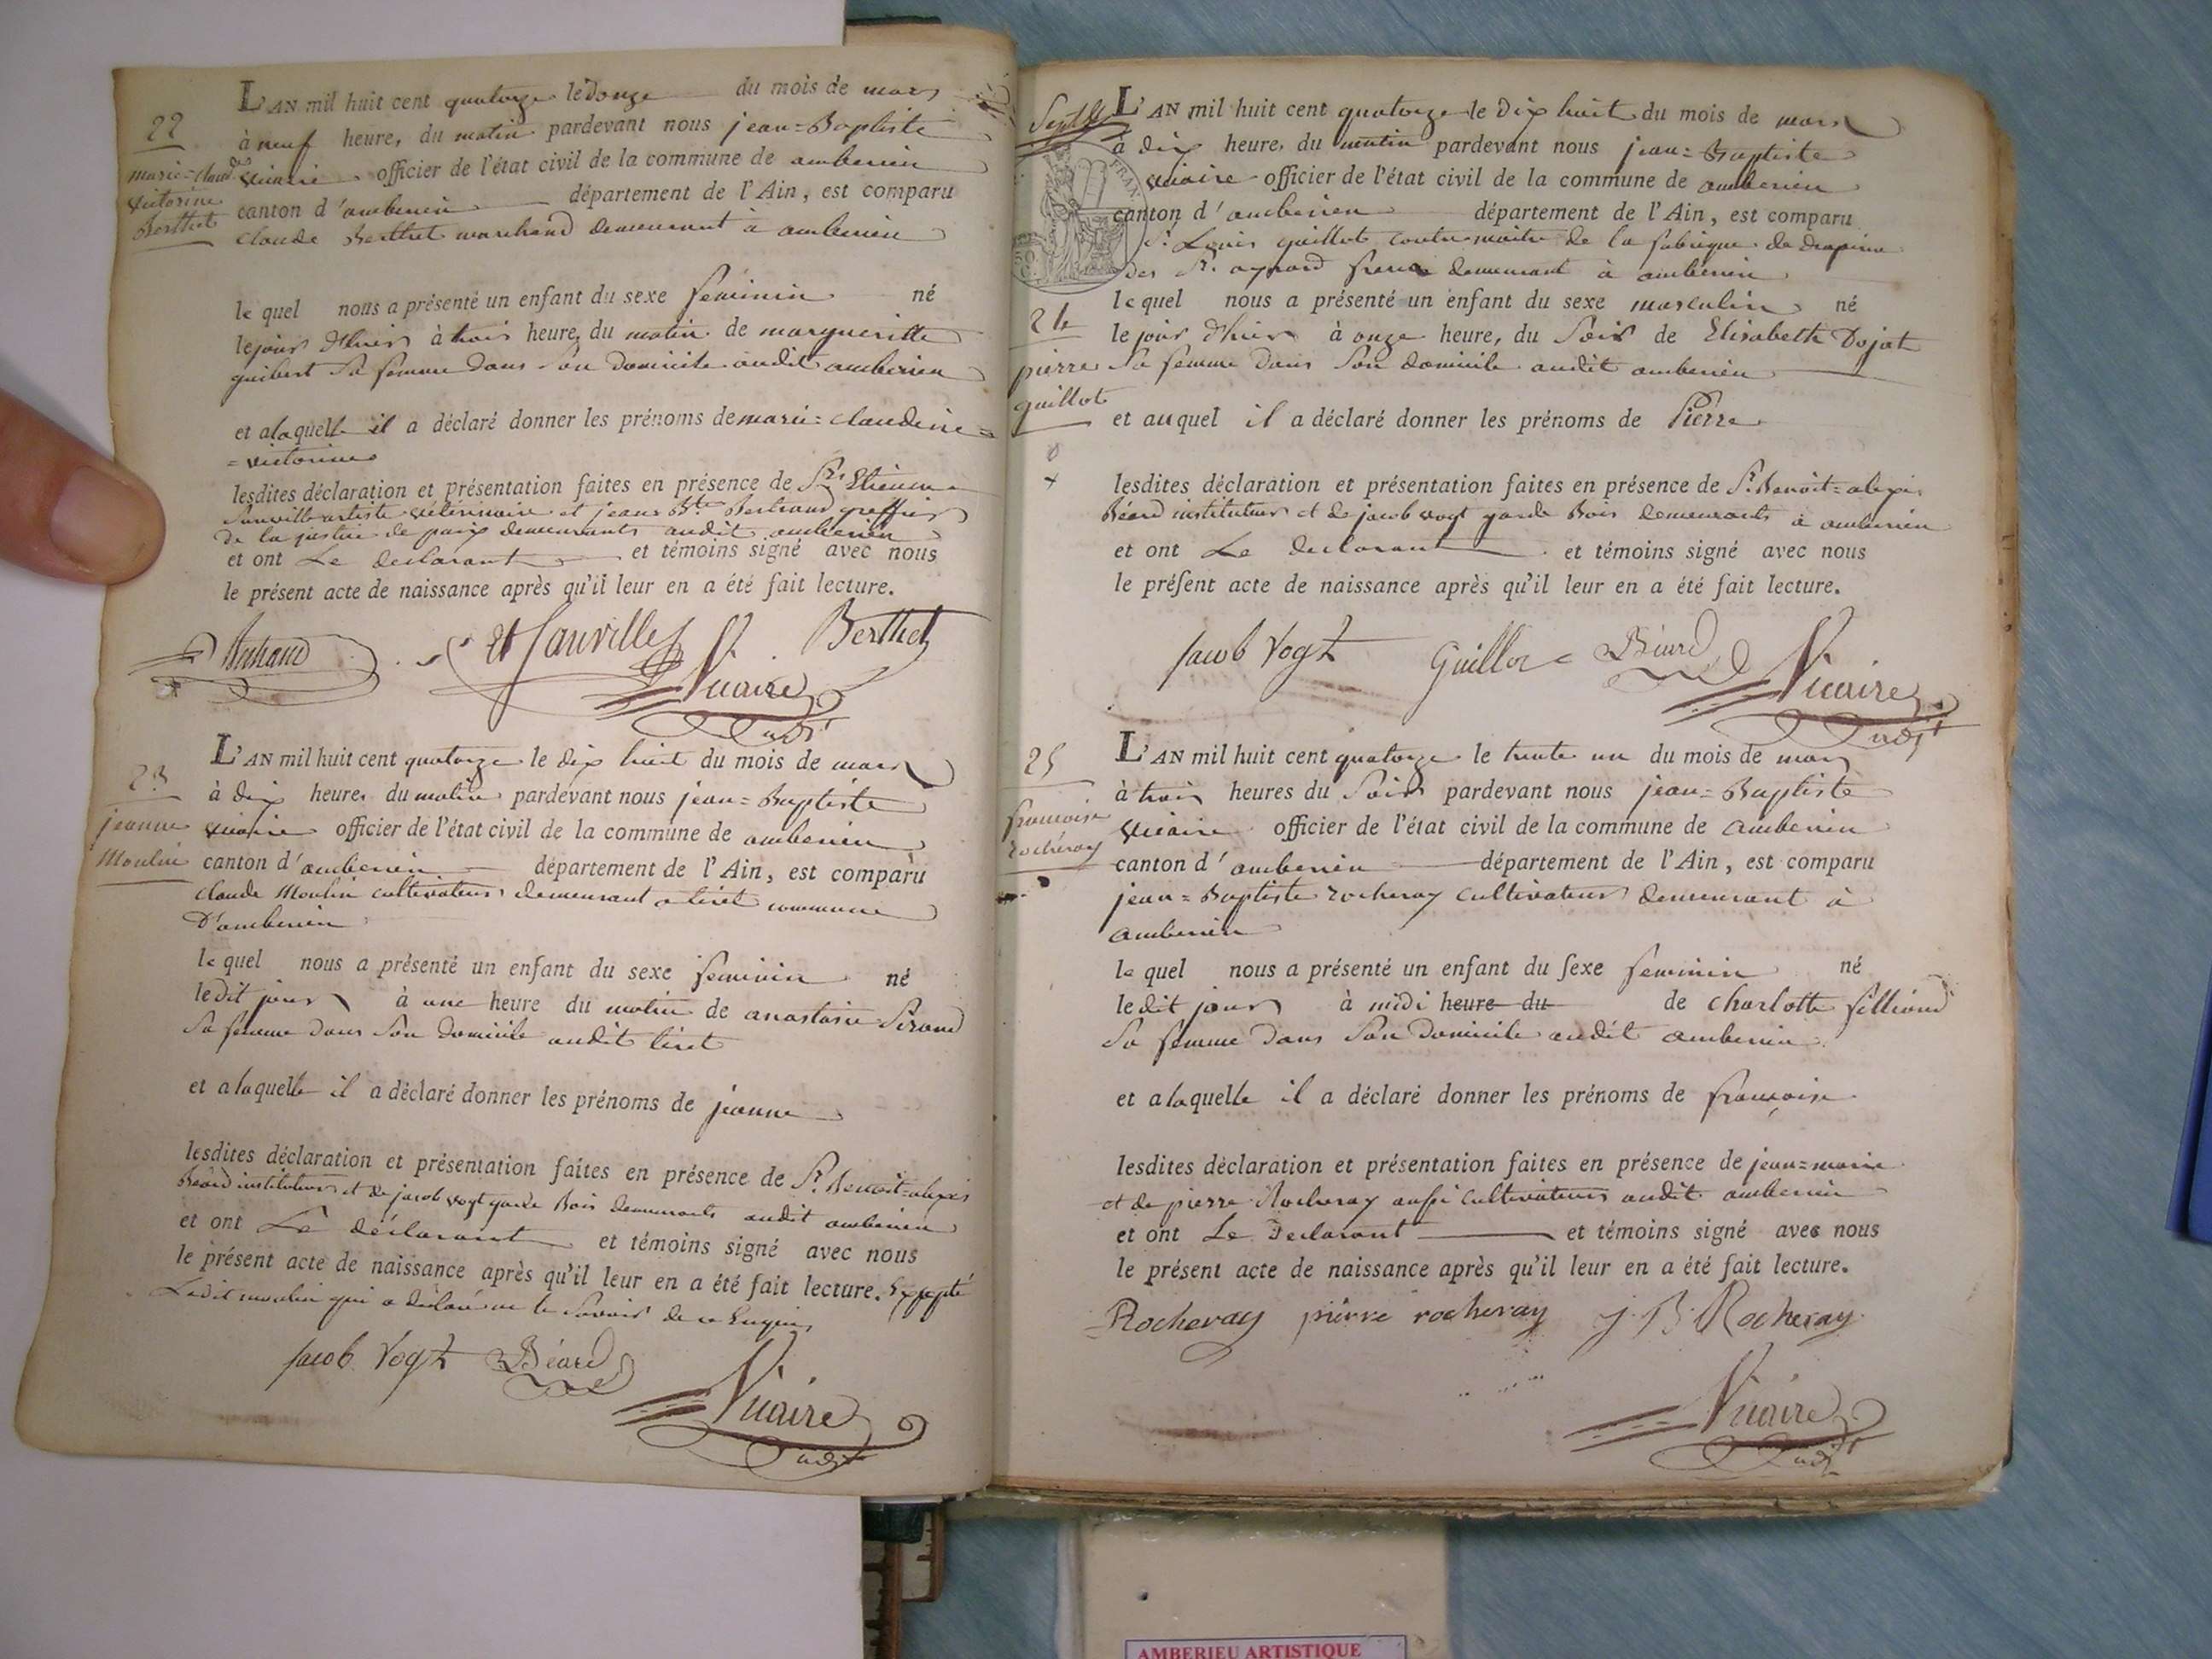 22
marie=claud.ne
victorine
Berthet
L'AN mil huit cent quatorze le douze du mois de mars
à neuf heure, du matin pardevant nous jean=Baptiste
vicaire officier de l'état civil de la commune de amberieu
canton d'amberieu département de l'Ain, est comparu
claude Berthet marchand demeurant à amberieu
le quel nous a présenté un enfant du sexe feminin né
le jour d'hier à trois heure, du matin de margueritte
guibert Sa femme dans Son domicile audit amberieu
et a laquelle il a déclaré donner les prénoms de marie=claudine=
=victorine
lesdites déclaration et présentation faites en présence de Srs Etienne
Sauville artiste vétérinaire et jean Bte Bertrand greffier
de la justice de paix demeurants audit amberieu
et ont Le declarant et témoins signé avec nous
le présent acte de naissance après qu'il leur en a été fait lecture.
Et Sauville Berthet
Vicaire
adjt
23
jeanne
Moulin
L'AN mil huit cent quatorze le dix huit du mois de mars
à dix heures du matin pardevant nous jean=Baptiste
vicaire officier de l'état civil de la commune de amberieu
canton d'amberieu département de l'Ain, est comparu
claude Moulin cultivateur demeurant a tiret commune
D'amberieu
le quel nous a présenté un enfant du sexe feminin né
ledit jour à une heure du matin de anastasie Sirand
Sa femme dans Son domicile audit tiret
et a laquelle il a déclaré donner les prénoms de jeanne
lesdites déclaration et présentation faites en présence de Sr. Benoit=alexis
Béard instituteur et de jacob vogt garde Bois demeurants audit amberieu
et ont Le déclarant et témoins signé avec nous
le présent acte de naissance après qu'il leur en a été fait lecture. Excepté
Ledit moulin qui a déclaré ne le Savoir de ce Enquis
jacob Vogt Béard
Vicaire
adjt
L'AN mil huit cent quatorze le dix huit du mois de mars
à dix heure, du matin pardevant nous jean=Baptiste
vicaire officier de l'état civil de la commune de amberieu
canton d'amberieu département de l'Ain, est comparu
Sr. Louis guillot contre maitre de la fabrique de draperie
des Srs. aynard freres demeurant à amberieu
24
pierre
guillot
le quel nous a présenté un enfant du sexe masculin né
le jour d'hier à onze heure, du Soir de Elisabeth Dojat
Sa femme dans Son domicile audit amberieu
et auquel il a déclaré donner les prénoms de Pierre
lesdites déclaration et présentation faites en présence de Sr. Benoit=alexis
Béard instituteur et de jacob vogt garde Bois demeurants à amberieu
et ont Le declarant et témoins signé avec nous
le présent acte de naissance après qu'il leur en a été fait lecture.
jacob Vogt Guillot Béard
Vicaire
adjt
25
francoise
rocheray
L'AN mil huit cent quatorze le trente un du mois de mars
à trois heures du Soir pardevant nous jean=Baptiste
vicaire officier de l'état civil de la commune de amberieu
canton d'amberieu département de l'Ain, est comparu
jean=Baptiste rocheray cultivateur demeurant à
amberieu
le quel nous a présenté un enfant du sexe feminin né
ledit jour à midi heure du de charlotte silliand
Sa femme dans Son domicile audit amberieu
et a laquelle il a déclaré donner les prénoms de françoise
lesdites déclaration et présentation faites en présence de jean=marie
et de pierre Rocheray aussi cultivateurs audit amberieu
et ont Le Declarant et témoins signé avec nous
le présent acte de naissance après qu'il leur en a été fait lecture.
Rocheray pierre rocheray J. B. Rocheray
Vicaire
adjt
AMBERIEU ARTISTIQUE